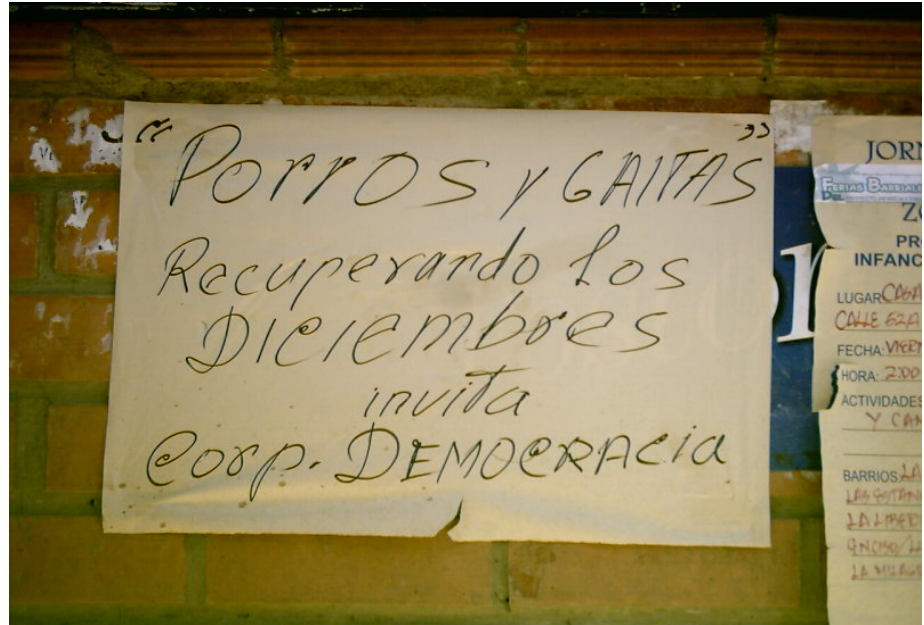 “PORROS Y GAITAS”
Recuperando Los
DICIEMbres
invita
Corp. DEMOCRACia
JOR
FERIAS
ZO
PR
INFANC
LUGAR CASA
CALLE 52A
FECHA: VIERN
HORA: 2:00
ACTIVIDADES
Y CAN
BARRIOS: LA
LAS ESTAN
LA LIBERT
ENCISO/LL
LA MILAG